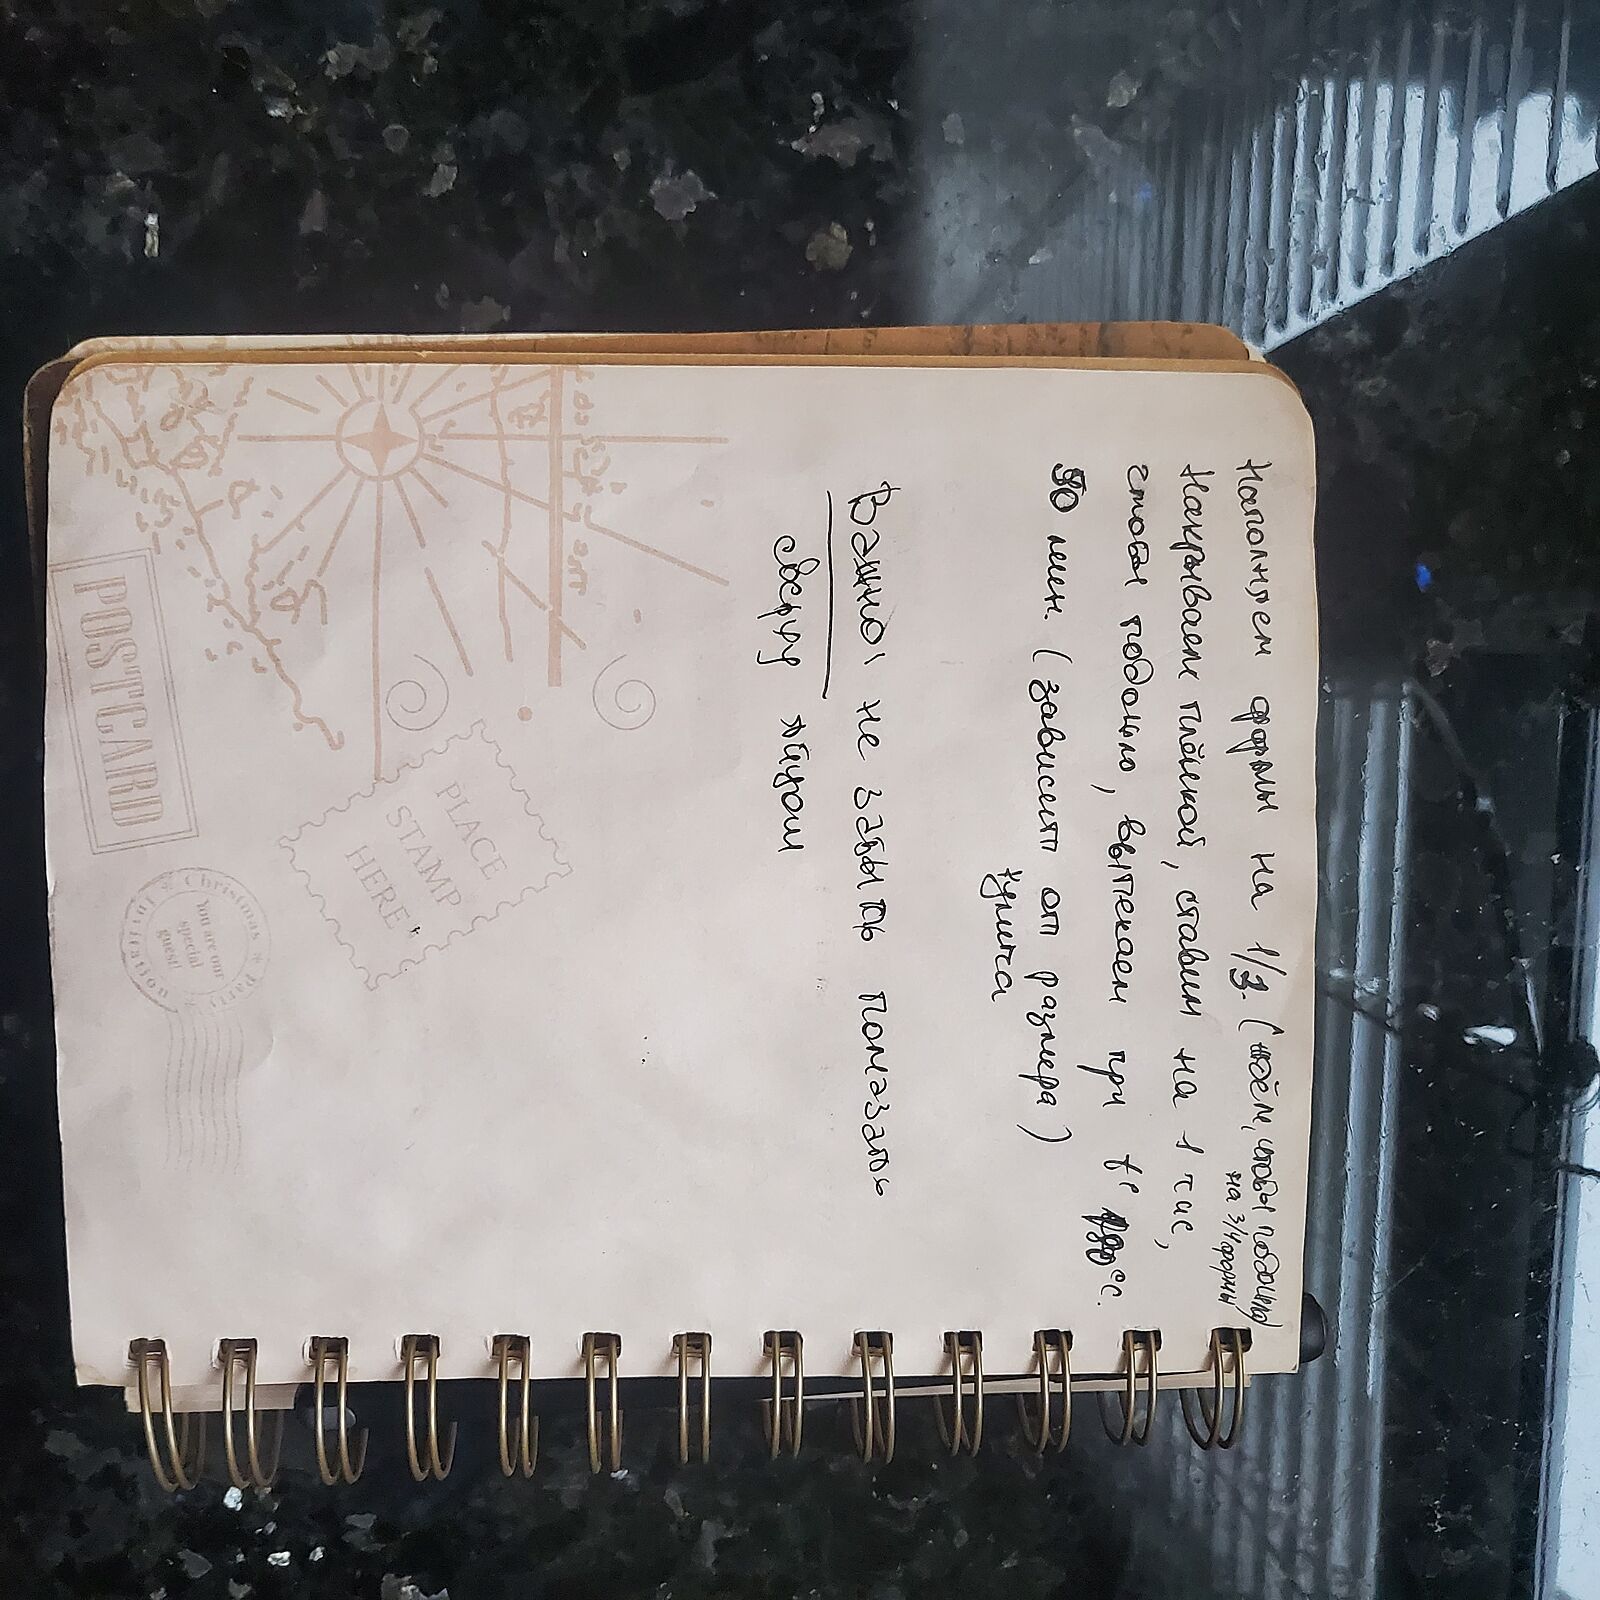 Наполняем формы на 1/3. (ждём, чтобы подошло
на 3/4 формы)
Накрываем плёнкой, ставим на 1 час,
чтобы подошло, выпекаем при t° °C.
50 мин. (зависит от размера)
кулича
Важно! не забыть помазать
сверху яйцом
PLACE
STAMP
HERE
POSTCARD
Christmas * Party * Invitation *
You are our
special
guest!